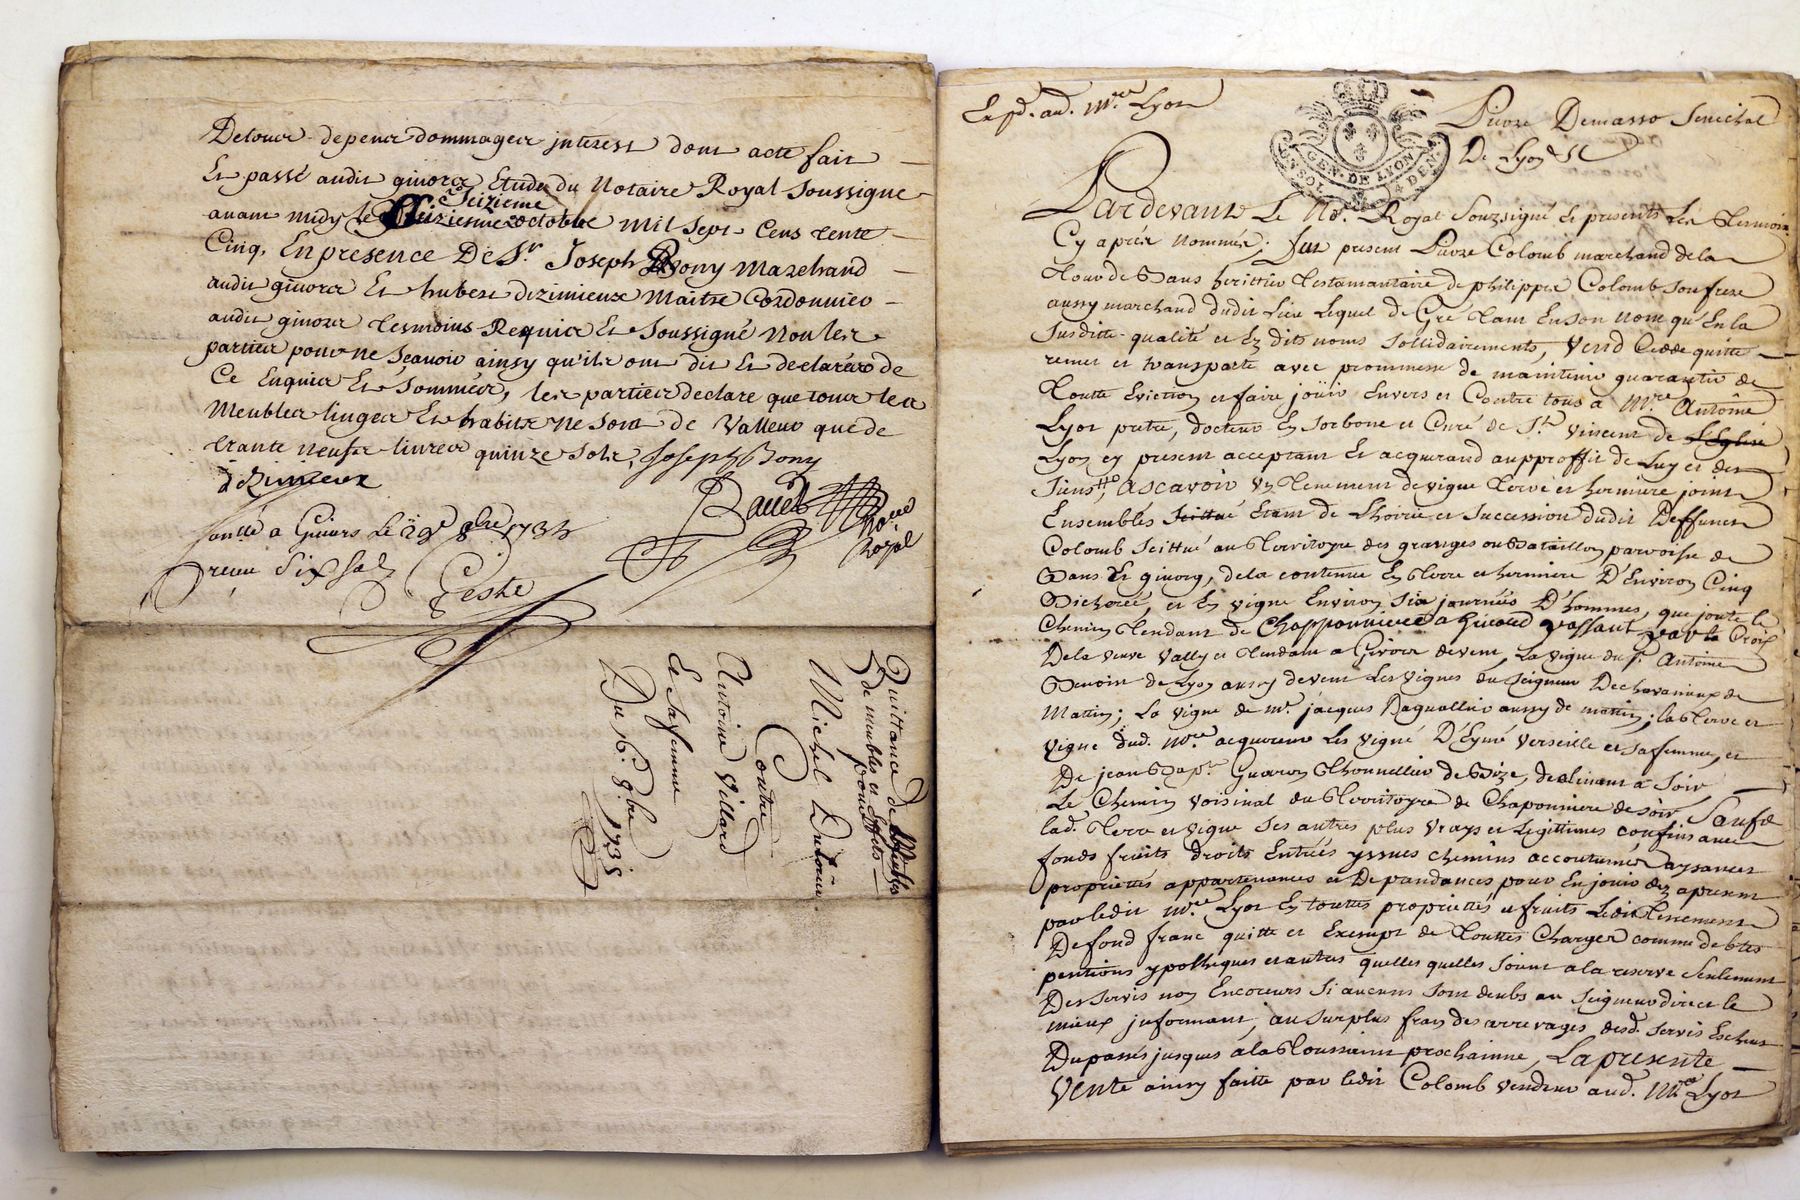 De tous depens dommages jnterest dont acte fait
Et passé audit givors Etude du Notaire Royal soussigne
avant midy le seizieme octobre mil sept cens trente
Cinq, En presence De Sr. Joseph Bony Marchand
audit givors Et hubert dezimieux Maitre Cordonnier
audit givors tesmoins Requis Et Soussigné Non les
parties pour ne sçavoir ainsy qu'ils ont dit Et declarés de
Ce Enquis Et Sommés, les parties declare que tous les
Meubles linges Et habits ne sont de Valleur que de
trante neuf livres quinze sols, Joseph Bony
dezimieux
Notre Royal
a Givors Le 29e 8bre 1735
receu Six sols
Quittance de Meubles
de meubles et Effets
pour
Michel
Contre
Antoine Villard
et Sa femme
Du 16e. 8bre 1735
Exp.d. aud. Mre Lyon
GEN. DE LYON
UN SOL 4 DEN
Demasso Senechal
De Lyon &c
Pardevant Le No.re Royal Souzsigné Et presents Les tesmoins
Cy aprés nommés; fut present Piere Colomb marchand de la
tour de Bans herittier testamantaire de philippe Colomb son frere
aussy marchand dudit Lieu Lequel de Gré tant En son nom qu'En la
susditte qualité et Es dits noms sollidairements, vend Cedde quitte
remet et transporte avec prommesse de maintenir guarantir de
toutte Eviction et faire jöuir Envers et Contre tous a Mre Antoine
Lyon pretre, docteur En Sorbone et Curé de St. vincent de
Lyon cy present acceptant Et acquerand au proffit de Luy et des
Siens, ascavoir un tenement de vigne terre et hermiere joint
Ensembles étant de Lhoirie et succession dudit Deffunct
Colomb Scittué au territoyre des granges ou Bataillon parroisse de
Bans Et givors, de la contenue En terre et hermiere D'Environ Cinq
Bicherée, et En vigne Environ six journées D'hommes, que joute le
Chemin tendant de Chapponniere a Givord passant par la Croix
De la veuve vally et tendant a Givors devent, La vigne du Sr. Antoine
Benoist de Lyon aussy devent Les vignes du Seigneur De
La vigne de Mr. jacques aussy de ; la terre et
vigne dud. Mre acquereur Les vigne D' Verseille et sa femme, et
De jean Bapt. thonnellier de Bize, declinant a Soir
Le Chemin voisinal du territoyre de Chaponniere de soir, Sauf de
lad. terre et vigne ses autres plus vrays et legittimes confins avec
fonds fruits droits Entrées yssues chemins accoutumés aysances
proprietés appartenances et Dependances, pour En jouir déz apresent
par ledit Mre Lyon En touttes proprietés et fruits Ledit tenement
De fond franc quitte et Exempt de touttes Charges comme debtes
pentions ypotheques et autres quelles quelles soient a la reserve seulement
Des servis non Encourus si aucuns sont deubs au Seigneur direct le
mieux jnformant, au surplus franc des arrerages desd. servis Escheus
Du passés jusques á la toussaint prochainne, La presente
Vente ainsy faitte par ledit Colomb vendeur aud. Mre Lyon